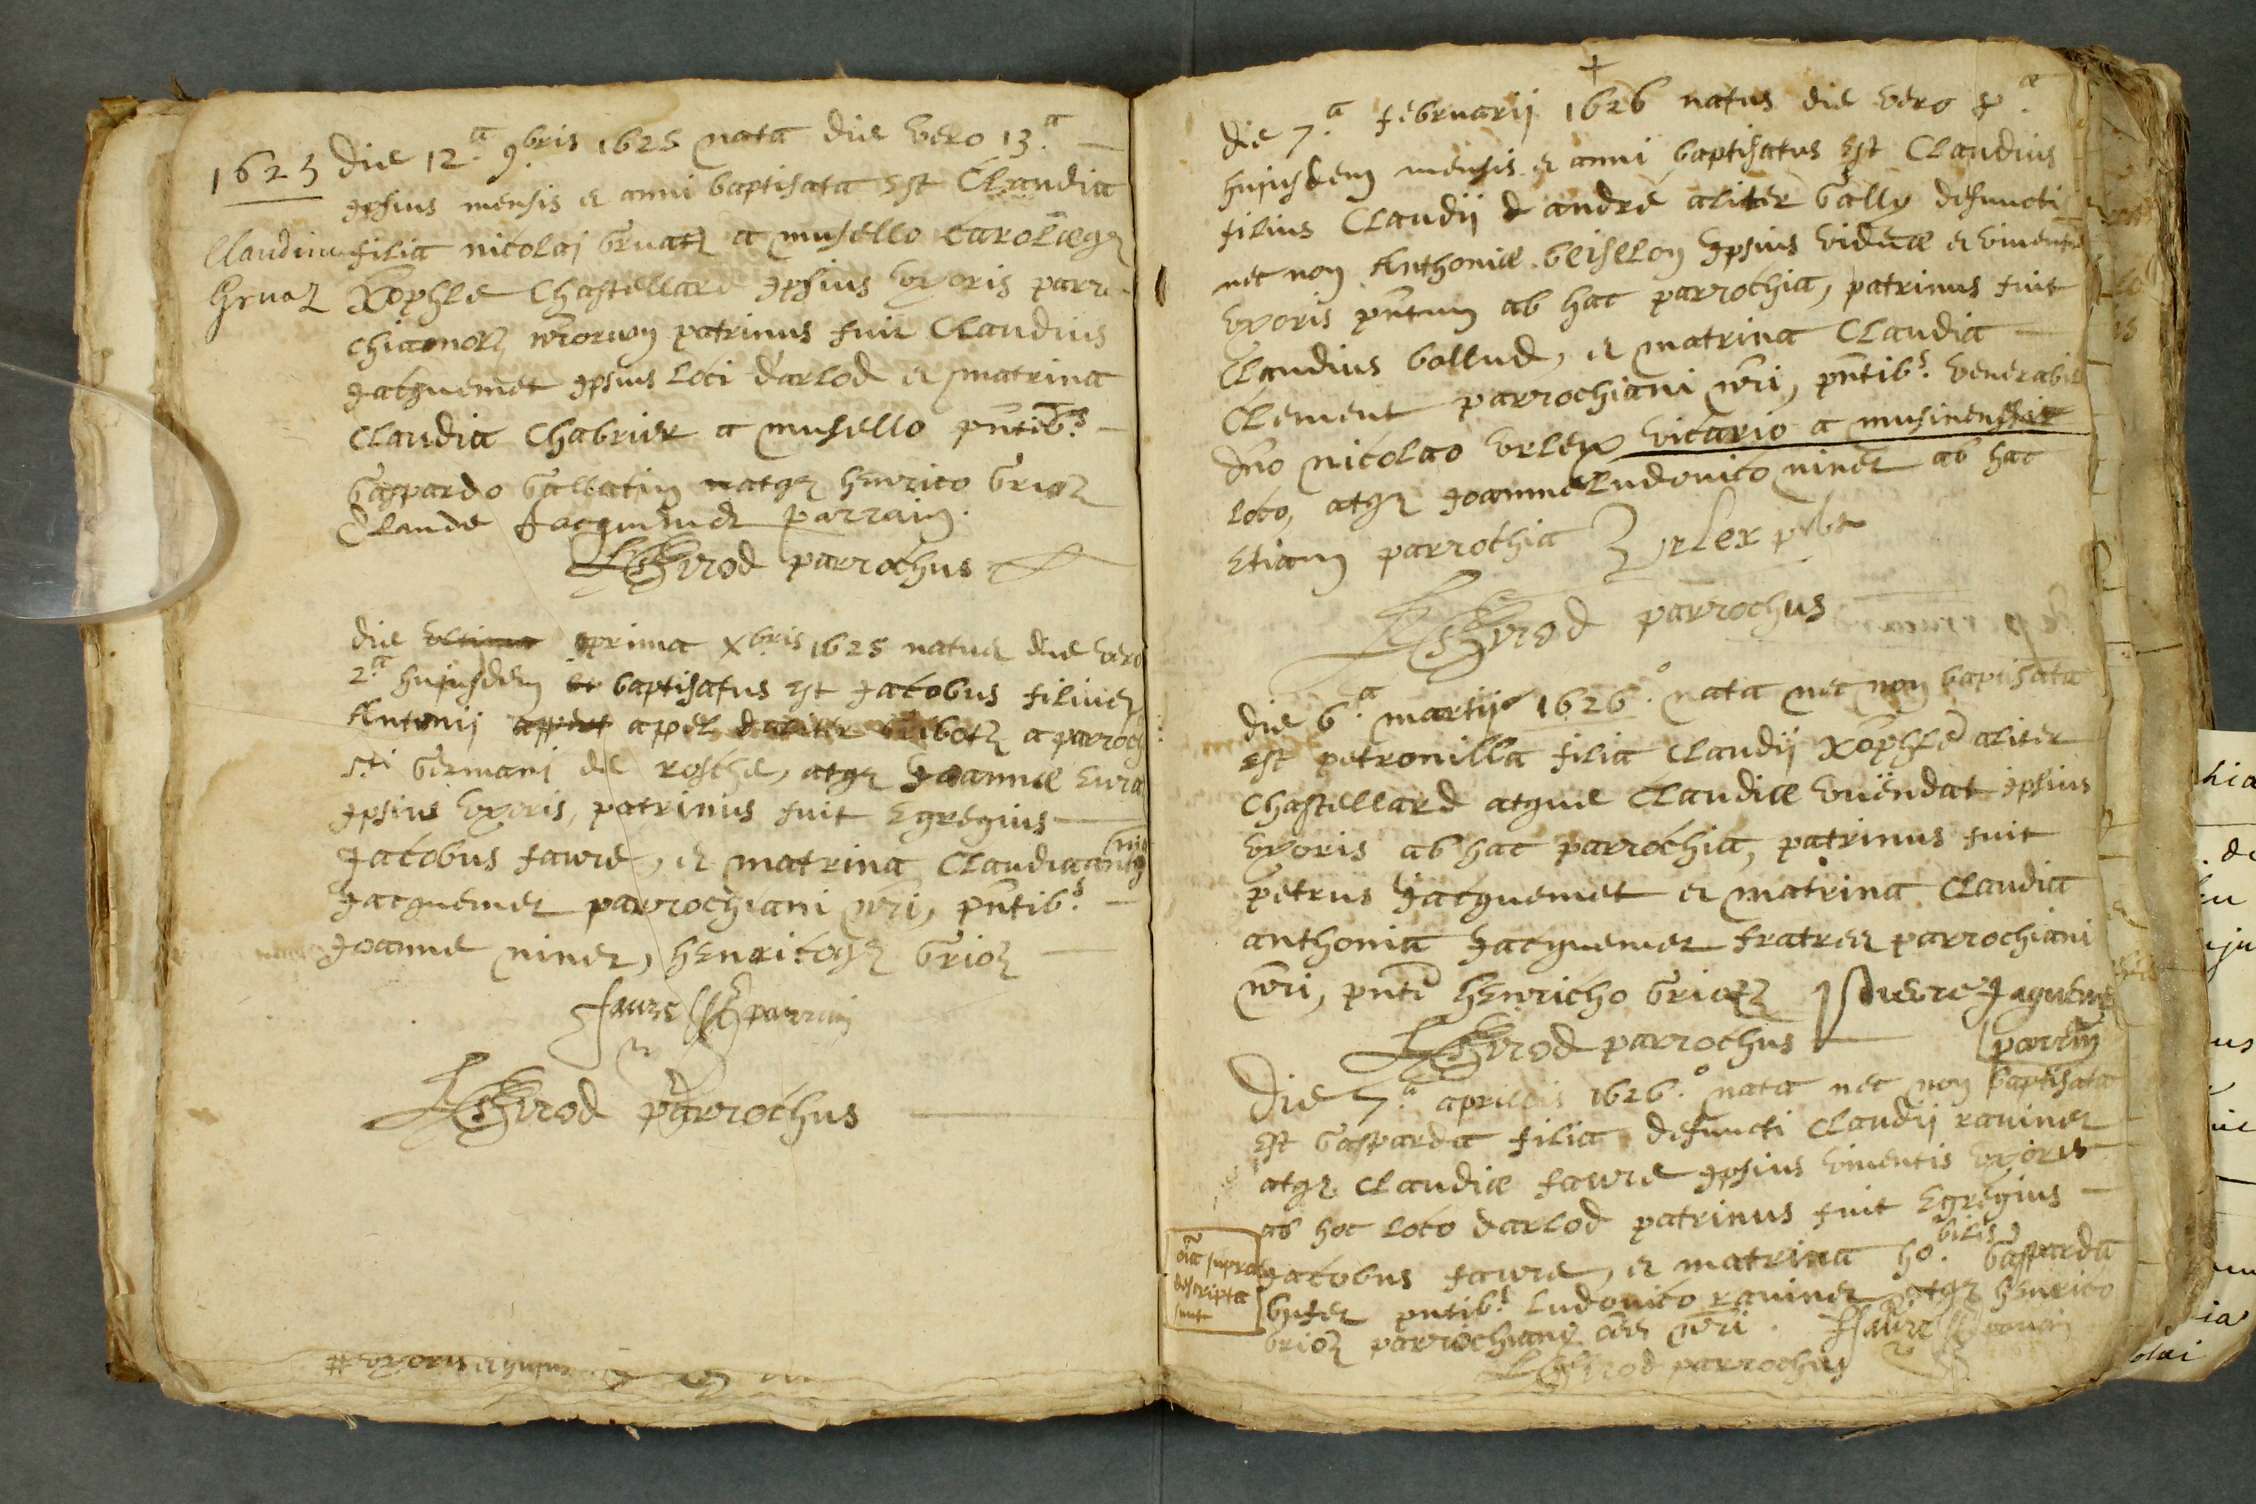 1625
Claudine
Gruaz
Die 12.a 9.bris 1625 nata die vero 13.a
ipsius mensis et anni baptisata est Claudia
filia nicolaj Gruatz a musello
xophle Chastellard ipsius uxoris parro-
chianorz nrorum patrinus fuit Claudius
Jacquemet ipsius loci d'arlod et matrina
Claudia Chabrier a musello pntibs.
Gaspardo Gallatin atqz henrico Grioz
Claude Jacquemet parrain.
Girod parrochus
die ultima prima xbris 1625 natus die vero
2.a hujusdem baptisatus est Jacobus filius
Antonij apel a parroch
sti Germani de rosthe, atqz Joannae
ipsius uxoris, patrinus fuit Egregius
Jacobus faure, et matrina Claudia
Jacquemet parrochiani nri, pntibs.
Joanne ninet, henricoqz Grioz
faure parrain
Girod parrochus
# uxoris
+
die 7.a februarij 1626 natus die vero 8.a
hujusdem mensis et anni baptisatus est Claudius
filius Claudij d andré aliter Gally defuncti
nec non Anthoniae beiselon ipsius viduae et viventis
uxoris pntum ab hac parrochia, patrinus fuit
Claudius ballud, et matrina Claudia
Clement parrochiani nri, pntibs. venerabili
dno nicolao urlex vicario a musinens
loco, atqz Joanne Ludovico ninet ab hac
etiam parrochia urlex pbr
Girod parrochus
die 6.a martij 1626.o nata nec non baptisata
est petronilla filia Claudij xophle aliter
Chastellard atque Claudiae vuendat ipsius
uxoris ab hac parrochia, patrinus fuit
petrus Jacquemet et matrina Claudia
anthonia Jacquemet fratres parrochiani
nri, pnte henricho Griotz pierre Jaquemet
Girod parrochus parrin
Die 7.a aprillis 1626.o nata nec non baptisata
est Gasparda filia defuncti Claudij ravinet
atqz Claudiae faure ipsius viventis uxoris
ab hoc loco darlod patrinus fuit Egregius
Jacobus faure, et matrina ho.bilis Gasparda
pntibs. Ludovico ravinet atqz henrico
Grioz parrochiani nri. faure parrain
Girod parrochus
oia supra
descripta
sunt